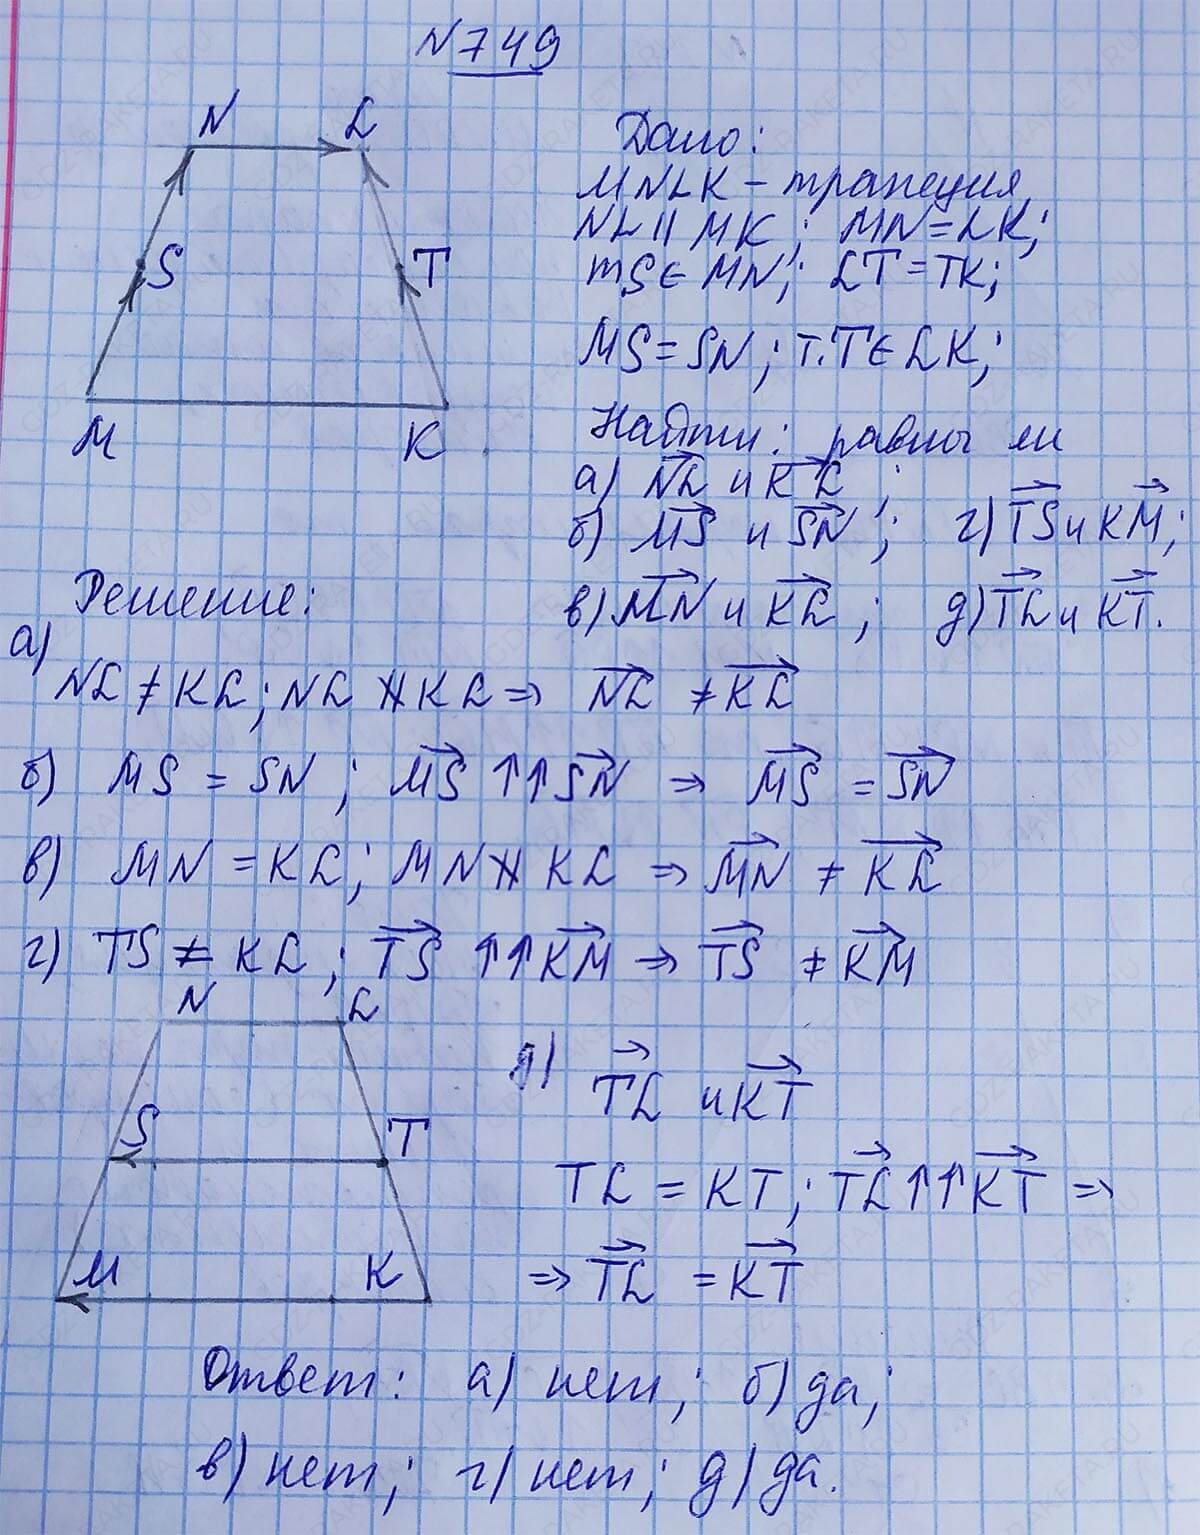 N 749
N L
S T
M K
Дано:
MNLK – трапеция
NL || MK ; MN = LK;
т S ∈ MN; LT = TK;
MS = SN ; т. T ∈ LK;
Найти: равны ли
а) NL⃗ и KL⃗ ;
б) MS⃗ и SN⃗ ; г) TS⃗ и KM⃗;
в) MN⃗ и KL⃗ ; д) TL⃗ и KT⃗.
Решение:
а)
NL ≠ KL ; NL ∦ KL ⇒ NL⃗ ≠ KL⃗
б) MS = SN ; MS⃗ ↑↑ SN⃗ ⇒ MS⃗ = SN⃗
в) MN = KL; MN ∦ KL ⇒ MN⃗ ≠ KL⃗
г) TS ≠ KL ; TS⃗ ↑↑ KM⃗ ⇒ TS⃗ ≠ KM⃗
N L
S T
M K
д) TL⃗ и KT⃗
TL = KT; TL⃗ ↑↑ KT⃗ ⇒
⇒ TL⃗ = KT⃗
Ответ: а) нет; б) да;
в) нет; г) нет; д) да.